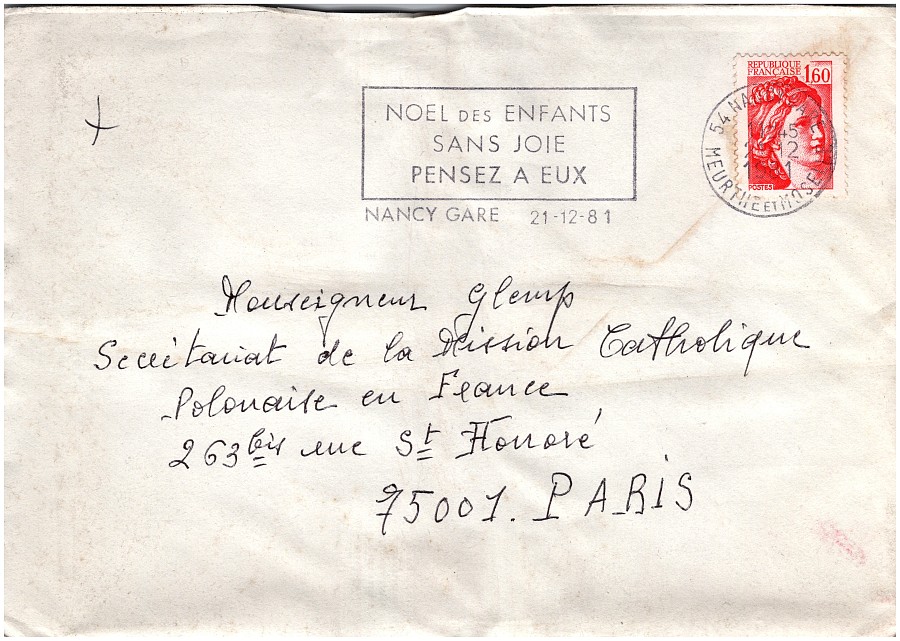 NOEL DES ENFANTS
SANS JOIE
PENSEZ A EUX
NANCY GARE 21-12-81
REPUBLIQUE
FRANÇAISE 1,60
POSTES
MEURTHE ET MOSELLE
Monseigneur Glemp
Secrétariat de la Mission Catholique
Polonaise en France
263 bis rue St Honoré
75001. PARIS